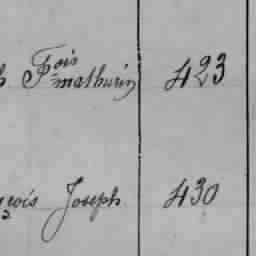 Fois mathurin 423
Joseph 430